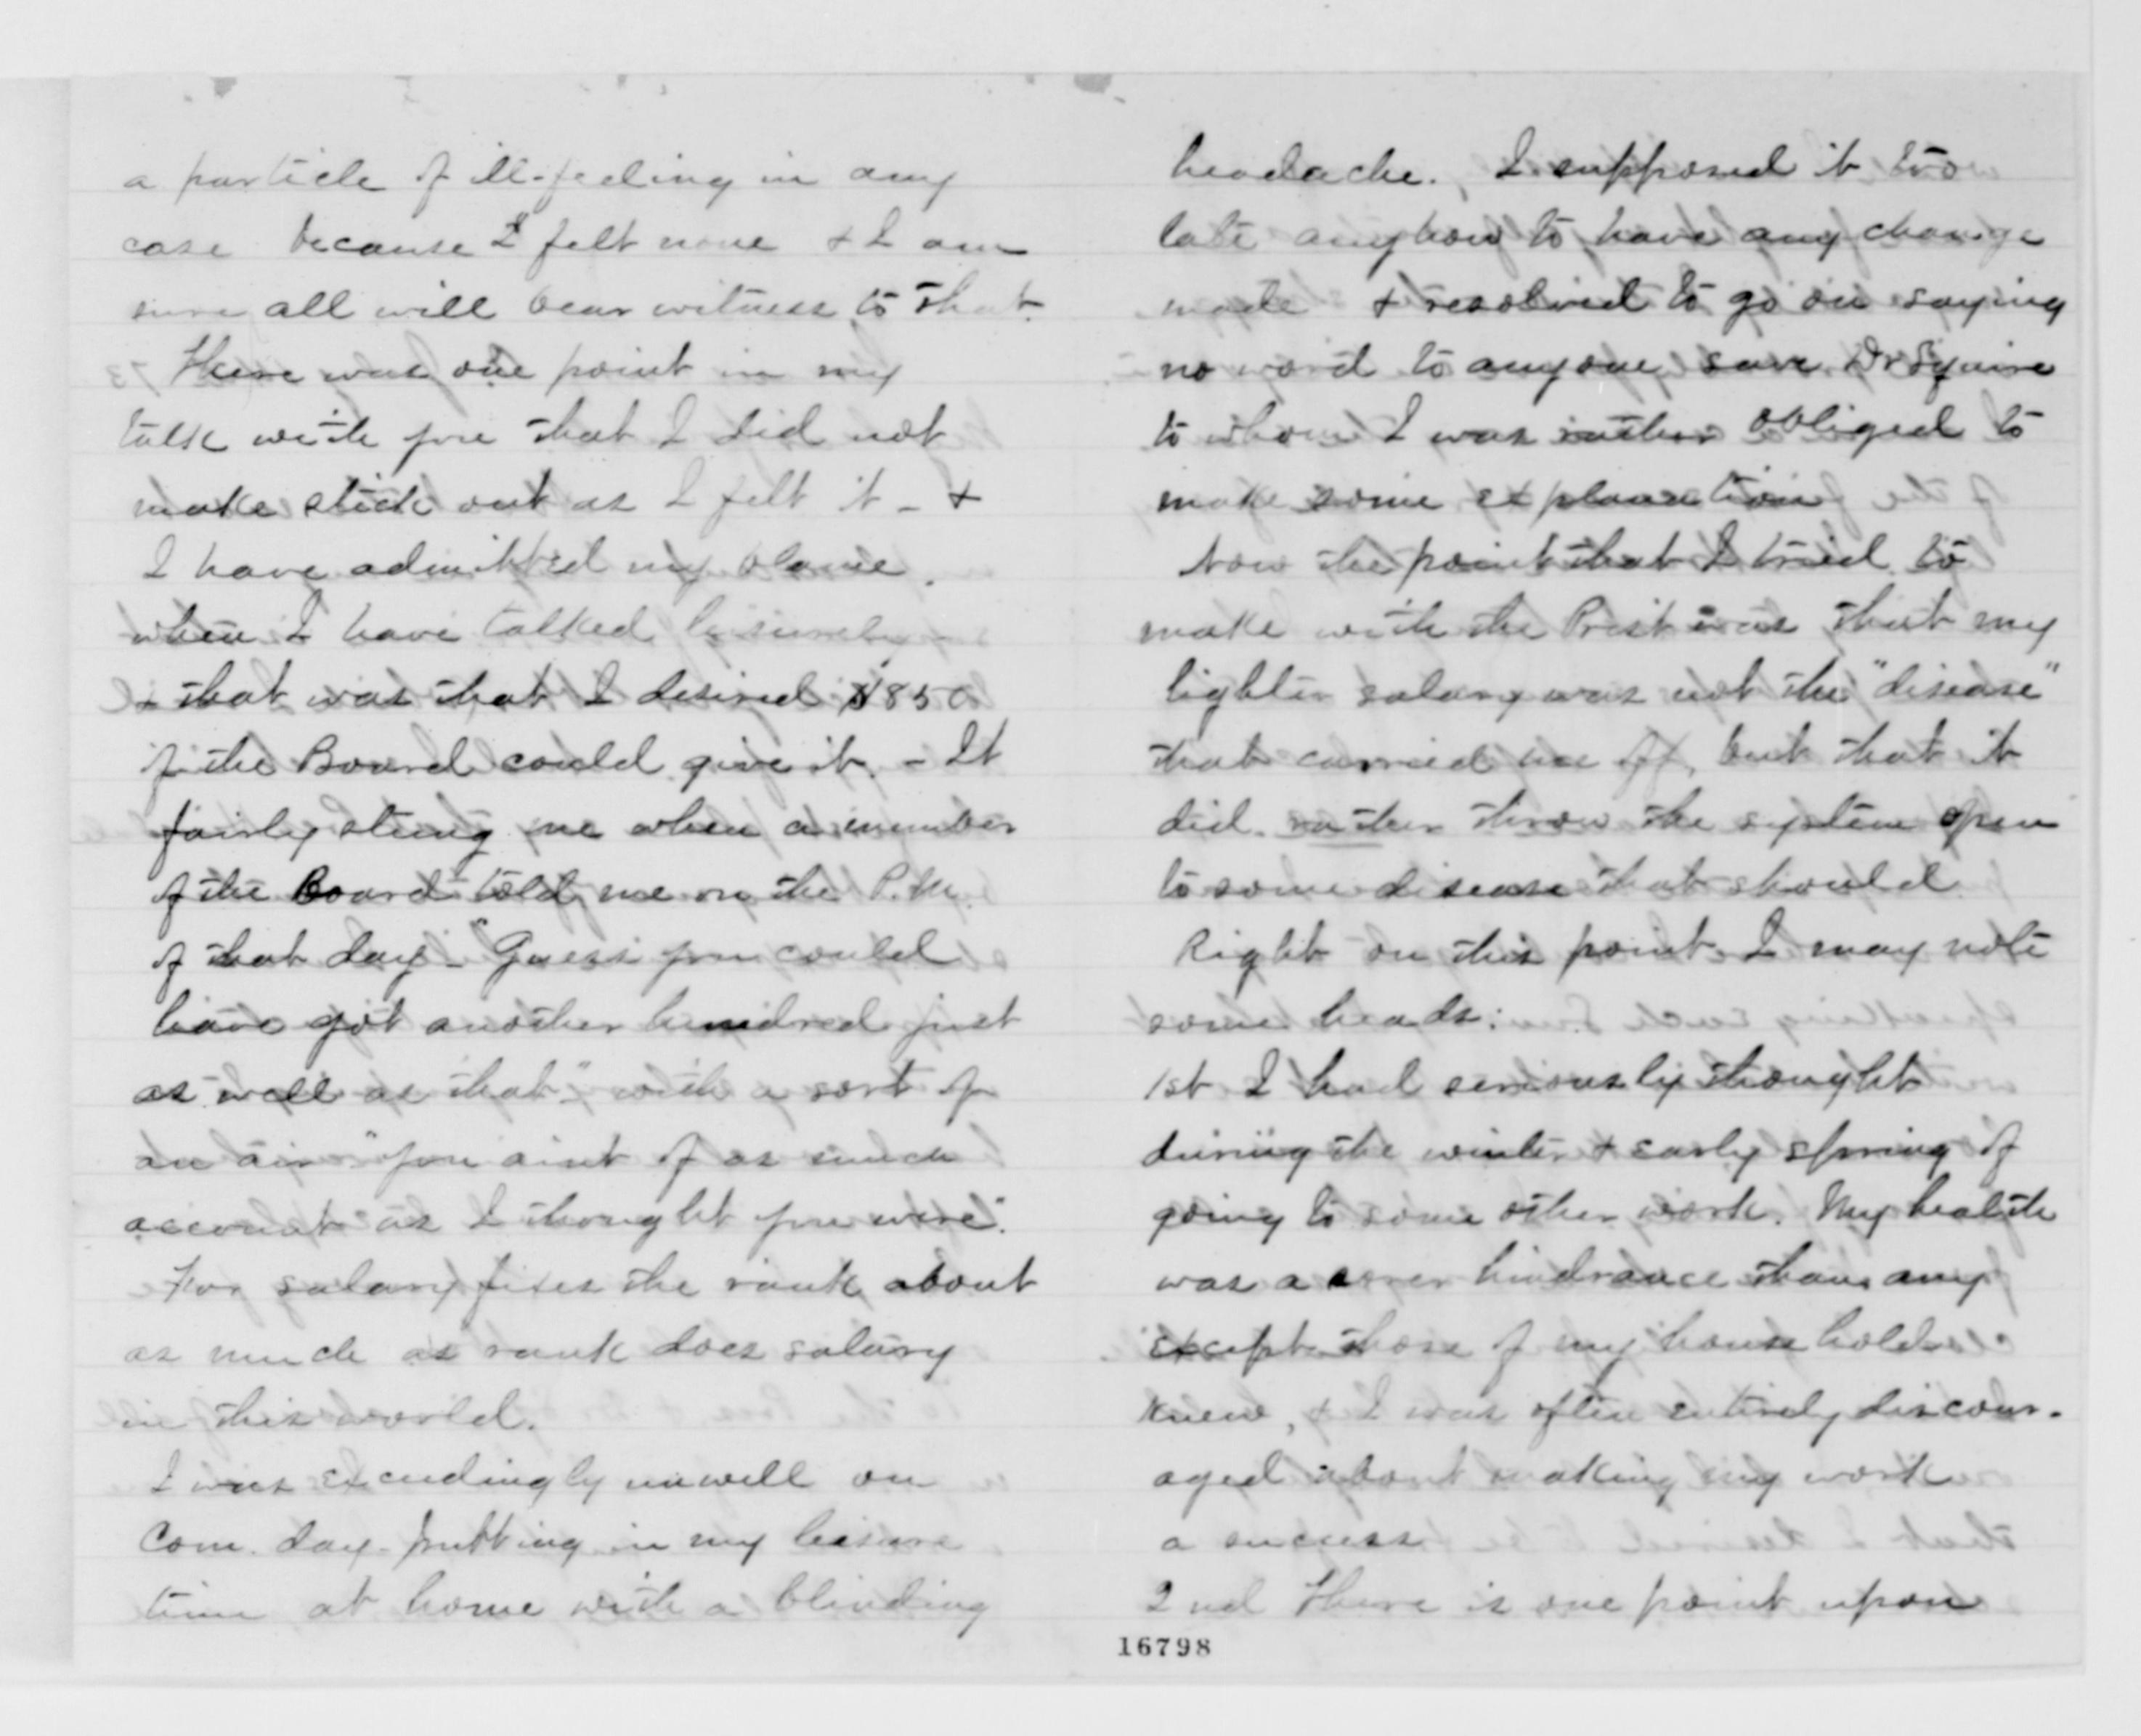 a particle of ill-feeling in any
case because I felt none & I am
sure all will bear witness to that.
There was one point in my
talk with you that I did not
make stick out as I felt it - &
I have admitted my blame
when I have talked leisurely -
& that was that I desired $850
if the Board could give it. - It
fairly stung me when a member
of the Board told me on the P.M.
of that day - "Guess you could
have got another hundred just
as well as that" - with a sort of
an air "you aint of as much
account as I thought you were".
For salary fixes the rank about
as much as rank does salary
in this world.
I was excedingly unwell on
Com. day - putting in my leisure
time at home with a blinding
headache. I supposed it too
late anyhow to have any change
made & resolved to go on saying
no word to anyone save Dr Squire
to whom I was rather obliged to
make some explanation
Now the point that I tried to
make with the Prest was that my
lighter salary was not the "disease"
that carried me off, but that it
did rather throw the system open
to some disease that should.
Right on this point I may note
some heads:
1st I had seriously thought
during the winter & early spring of
going to some other work. My health
was a sorer hindrance than any
except those of my household
knew, & I was often entirely discour-
aged about making my work
a success
2nd There is one point upon
16798